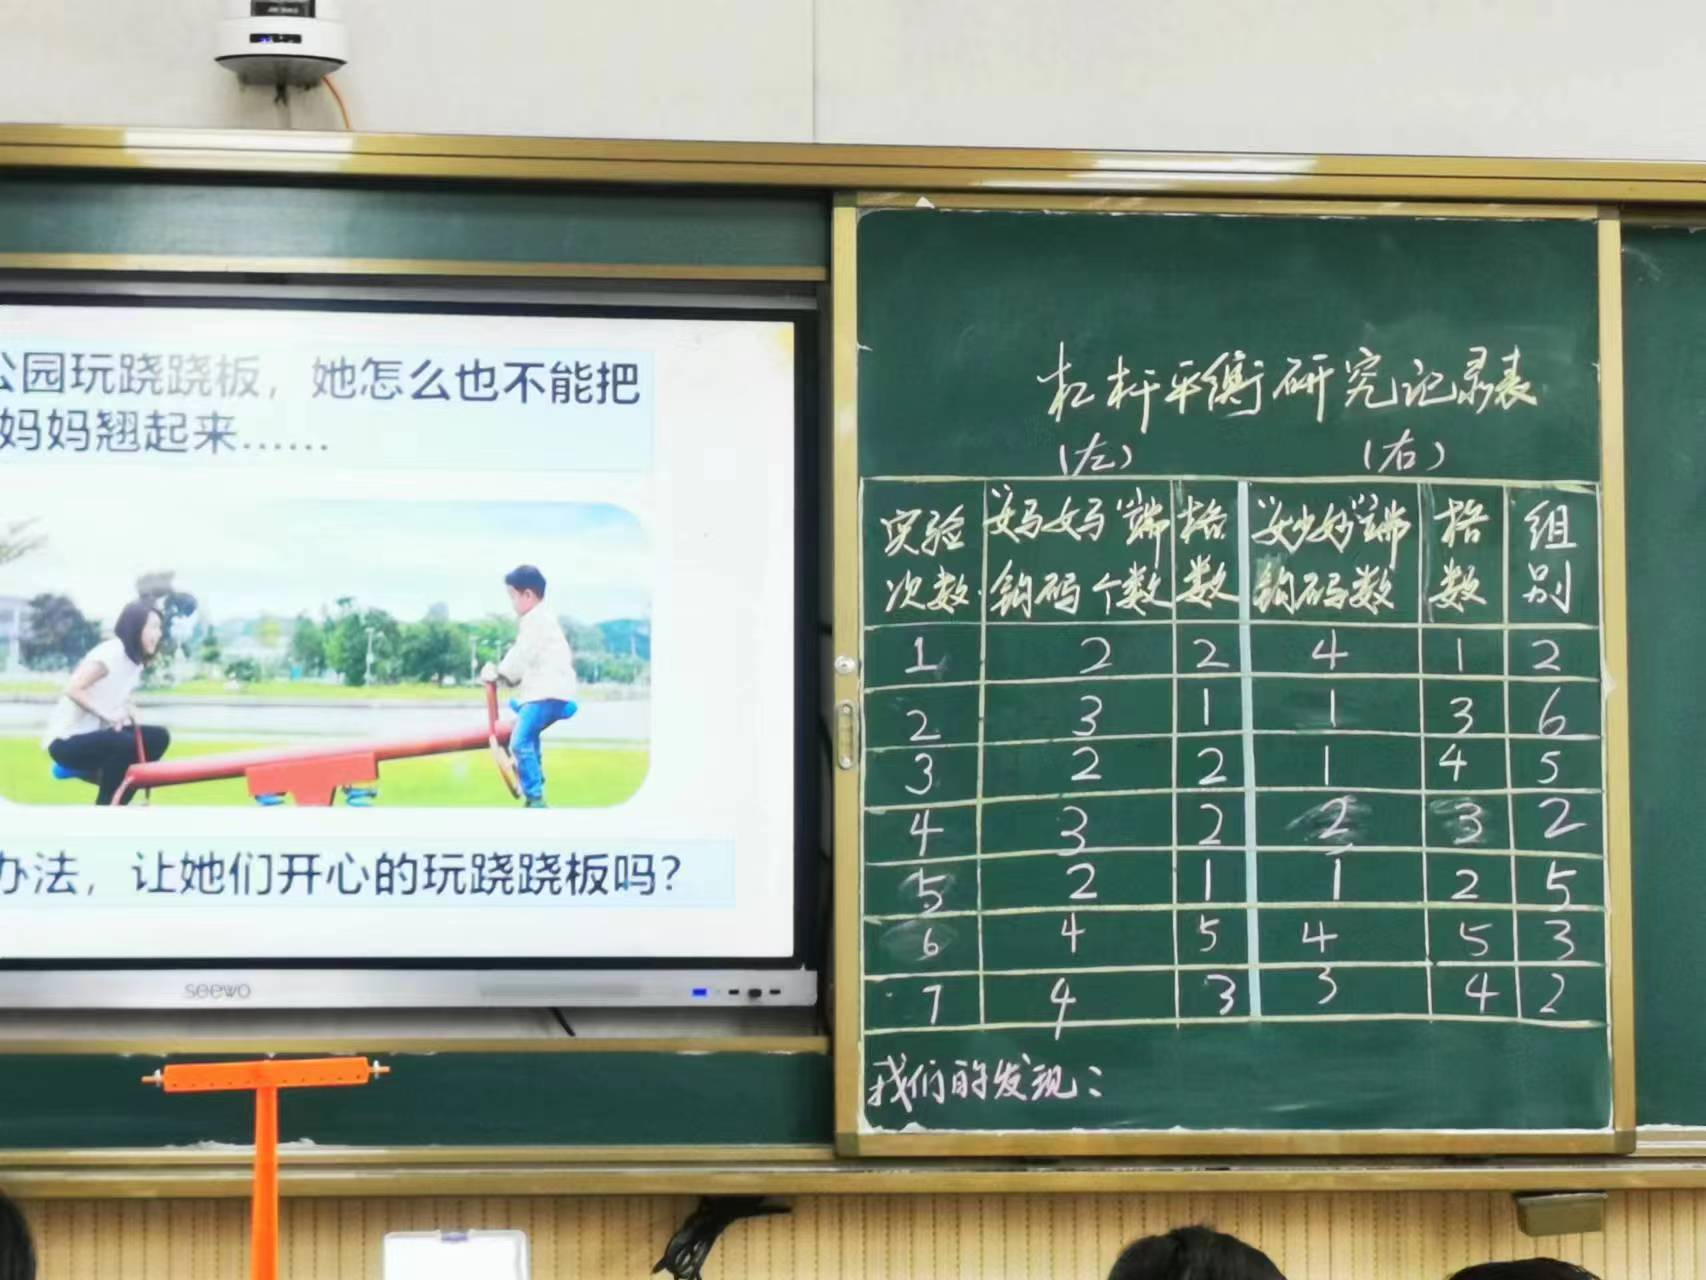 公园玩跷跷板，她怎么也不能把
妈妈翘起来……
办法，让她们开心的玩跷跷板吗？
seewo
杠杆平衡研究记录表
（左） （右）
实验次数 “妈妈”端钩码个数 格数 “妙妙”端钩码数 格数 组别
1 2 2 4 1 2
2 3 1 1 3 6
3 2 2 1 4 5
4 3 2 2 3 2
5 2 1 1 2 5
6 4 5 4 5 3
7 4 3 3 4 2
我们的发现：